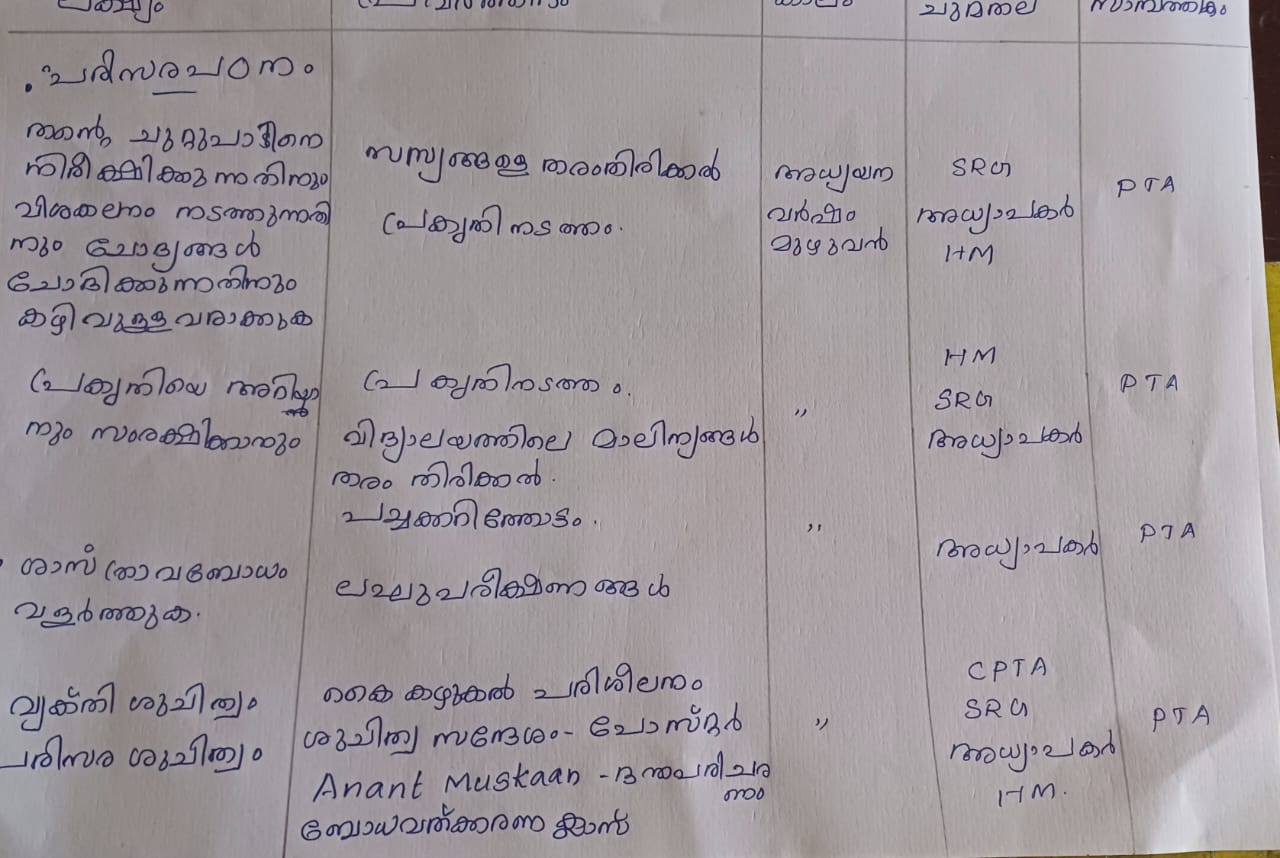 ലക്ഷ്യം പ്രവർത്തനം കാലം ചുമതല സാമ്പത്തികം
പരിസരപഠനം
തന്റെ ചുറ്റുപാടിനെ
നിരീക്ഷിക്കുന്നതിനും
വിശകലനം നടത്തുന്നതി
നും ചോദ്യങ്ങൾ
ചോദിക്കുന്നതിനും
കഴിവുള്ളവരാക്കുക
സസ്യങ്ങളെ തരംതിരിക്കൽ
പ്രകൃതി നടത്തം.
അധ്യയന
വർഷം
മുഴുവൻ
SRG
അധ്യാപകർ
HM
PTA
പ്രകൃതിയെ അറിയാ
നും സംരക്ഷിക്കാനും
പ്രകൃതിനടത്തം.
വിദ്യാലയത്തിലെ മാലിന്യങ്ങൾ
തരം തിരിക്കൽ.
പച്ചക്കറിത്തോട്ടം.
"
HM
SRG
അധ്യാപകർ
PTA
ശാസ്ത്രാവബോധം
വളർത്തുക.
ലഘുപരീക്ഷണങ്ങൾ
"
അധ്യാപകർ
PTA
വ്യക്തി ശുചിത്വം
പരിസര ശുചിത്വം
കൈ കഴുകൽ പരിശീലനം
ശുചിത്വ സന്ദേശം - പോസ്റ്റർ
Anant Muskaan - ദന്തപരിചര
ണം
ബോധവത്ക്കരണ ക്ലാസ്
"
CPTA
SRG
അധ്യാപകർ
HM.
PTA